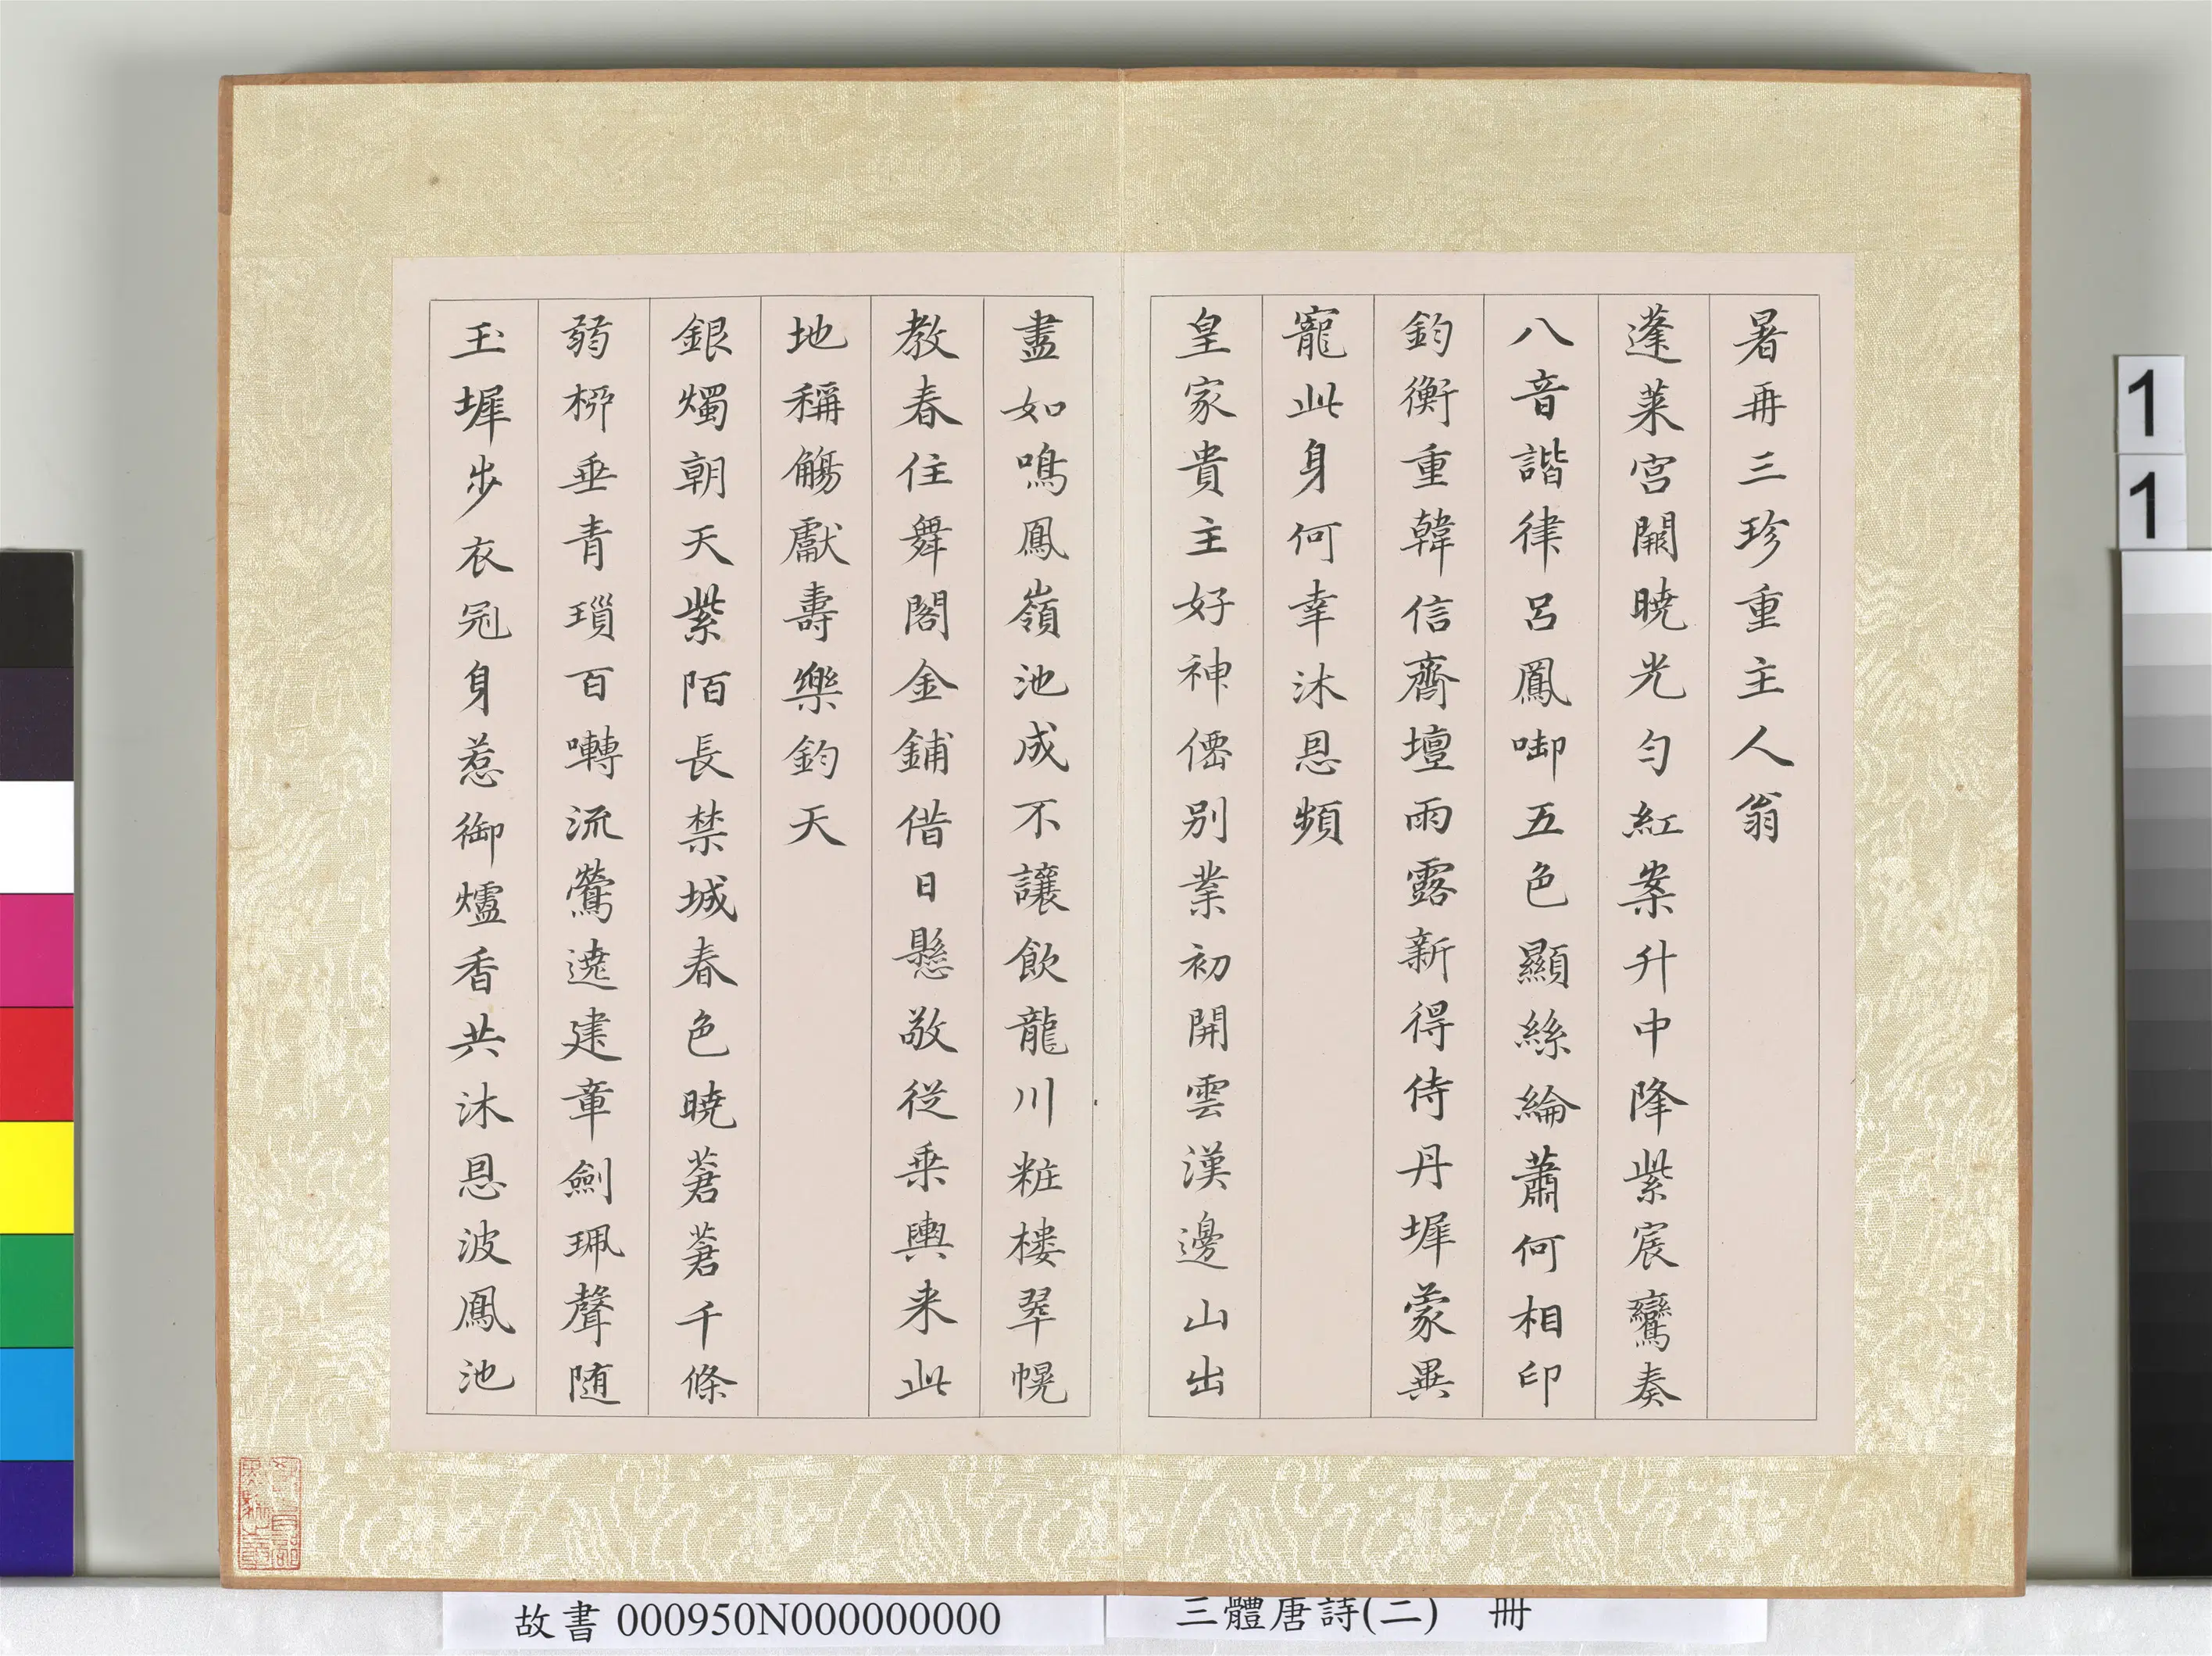 暑再三珍重主人翁
蓬萊宮闕曉光勻紅案升中降紫宸鸞奏
八音諧律呂鳳啣五色顯絲綸蕭何相印
鈞衡重韓信齋壇雨露新得侍丹墀蒙異
寵此身何幸沐恩頻
皇家貴主好神僊別業初開雲漢邊山出
盡如鳴鳳嶺池成不讓飲龍川粧樓翠幌
教春住舞閣金鋪借日懸敬從乘輿来此
地稱觴獻壽樂鈞天
銀燭朝天紫陌長禁城春色曉蒼蒼千條
弱栁垂青瑣百囀流鶯遶建章劍珮聲隨
玉墀步衣冠身惹御爐香共沐恩波鳳池
1
1
故書 000950N000000000
三體唐詩(二) 冊